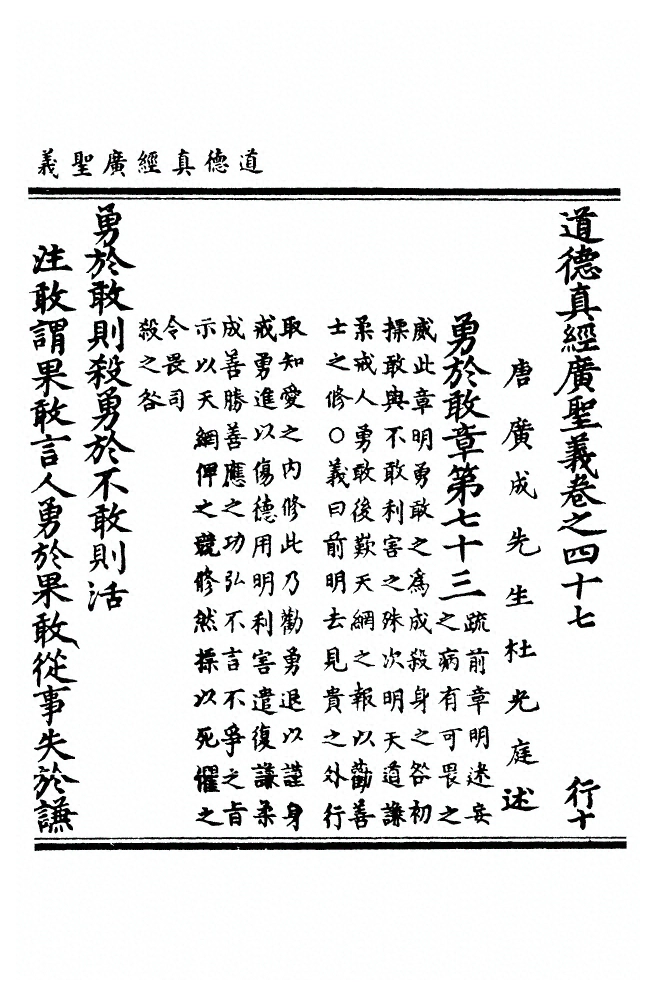 道德真經廣聖義
道德真經廣聖義卷之四十七 行十
唐廣成先生杜光庭述
勇於敢章第七十三 疏前章明迷妄
之病有可畏之
威此章明勇敢之為成殺身之咎初
操敢與不敢利害之殊次明天道謙
柔戒人勇敢後歎天網之報以勸善
士之修○義曰前明去見貴之外行
取知愛之內修此乃勸勇退以謹身
戒勇進以傷德用明利害遣復謙柔
成善勝善應之功弘不言不爭之旨
示以天網俾之競修然操以死懼之
令畏司
殺之咎
勇於敢則殺勇於不敢則活
注敢謂果敢言人勇於果敢從事失於謙